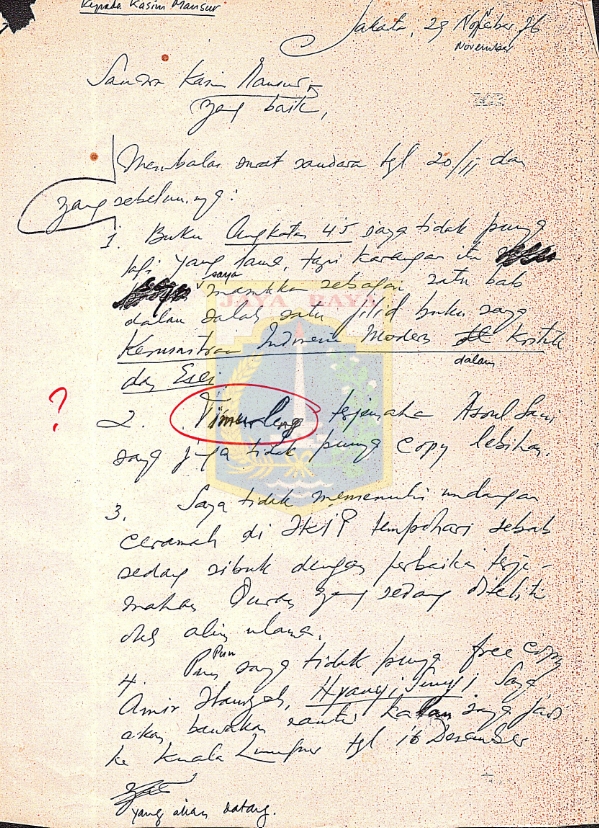 Kepada Kasim Mansur
Jakarta, 29 November 76
November
Saudara Kasim Mansur
yang baik,
Membalas surat saudara tgl 20/11 dan
yang sebelumnya:
1. Buku Angkatan 45 saya tidak punya
lagi yang lama, tapi karangan itu
saya masukkan sebagai satu bab
JAYA RAYA
dalam salah satu jilid buku saya
Kesusastraan Indonesia Modern Kritik
dalam
dan Esei.
?
2. Timurleng terjemahan
saya juga tidak punya copy lebihan.
3. Saya tidak memenuhi undangan
ceramah di IKIP tempohari sebab
sedang sibuk dengan perbaikan terje-
mahan Quran yang sedang diteliti
oleh alim ulama.
Pun
4. Pun saya tidak punya free copy
Amir Hamzah, Nyanyi Sunyi Saya
akan bawakan nanti kalau saya jadi
ke Kuala Lumpur tgl 16 Desember
yang akan datang.